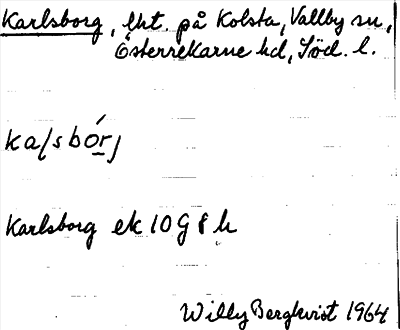 Karlsborg, lht. på Kolsta, Vallby sn,
Österrekarne hd, Söd. l.
kaʃsbórj
Karlsborg ek 10 G 8 h
Willy Bergkvist 1964